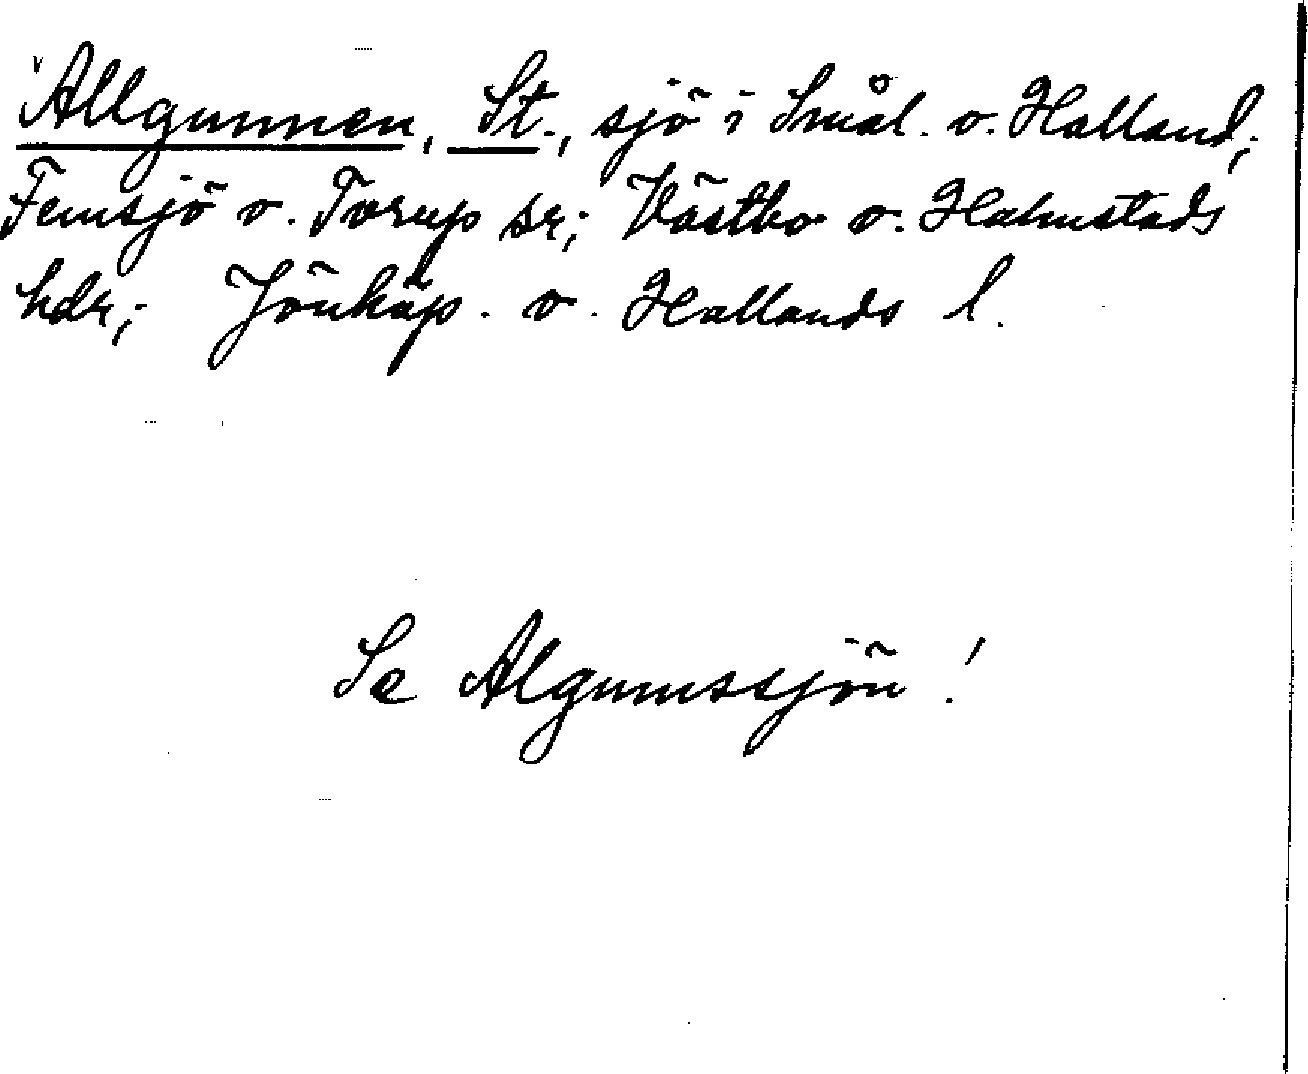 Allgunnen, St., sjö i Smål. o. Halland;
Femsjö o. Torup sr; Västbo o. Halmstads
hdr; Jönköp. o. Hallands l.
Se Algunnssjön!